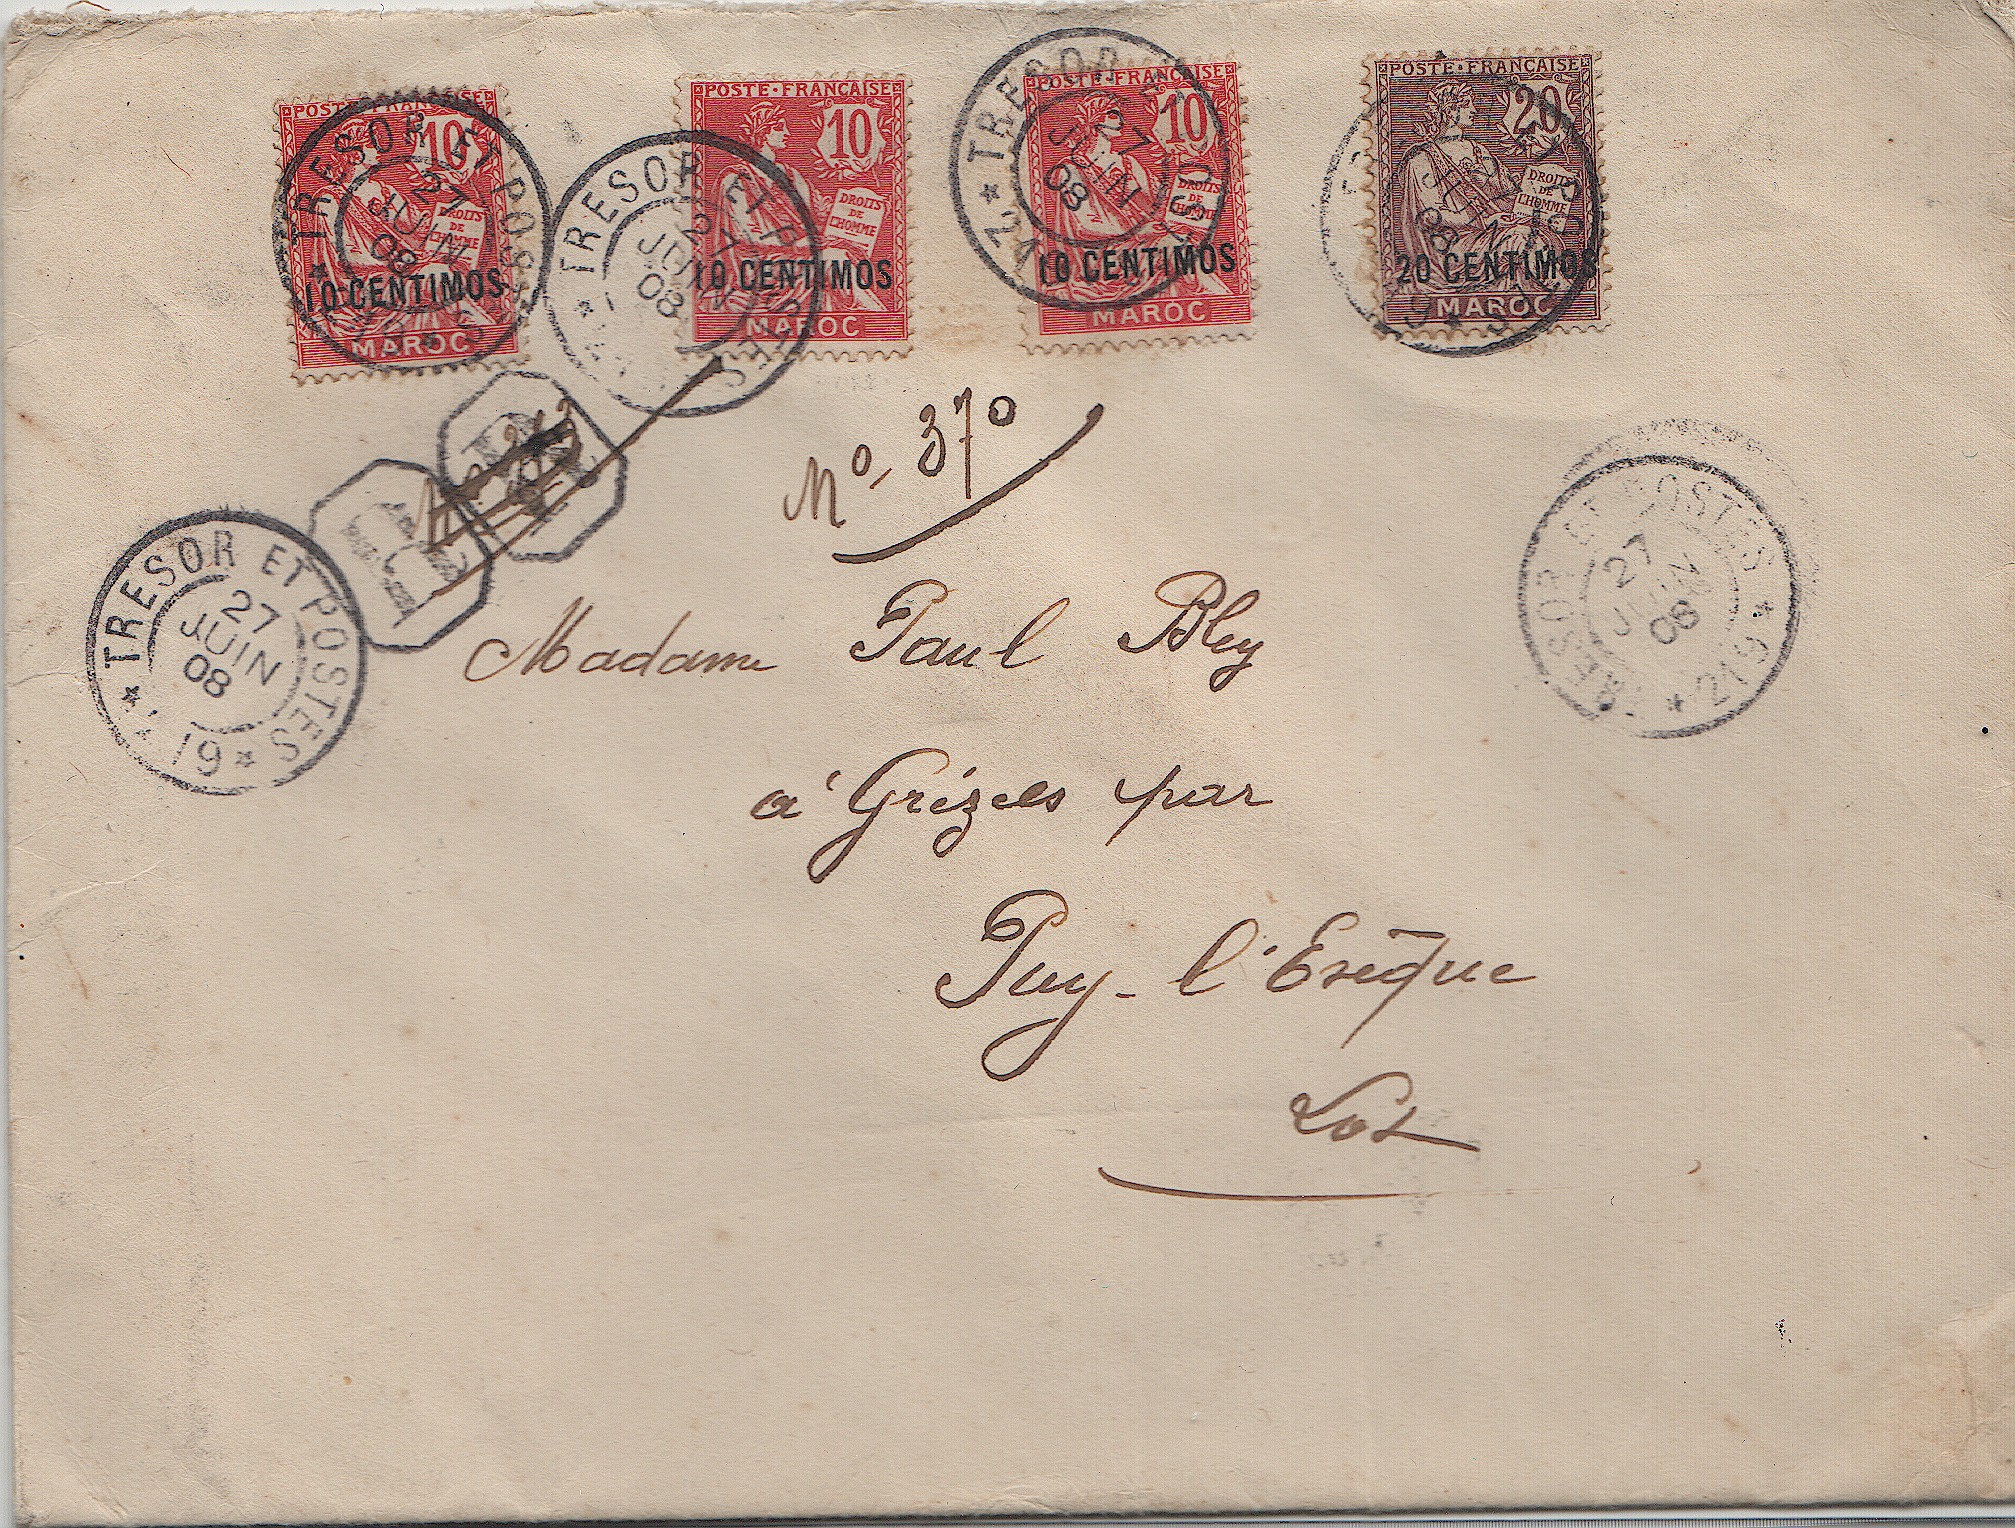 POSTE·FRANÇAISE
10
DROITS DE L'HOMME
10 CENTIMOS
MAROC
POSTE·FRANÇAISE
10
DROITS DE L'HOMME
10 CENTIMOS
MAROC
POSTE·FRANÇAISE
10
DROITS DE L'HOMME
10 CENTIMOS
MAROC
POSTE·FRANÇAISE
20
DROITS DE L'HOMME
20 CENTIMOS
MAROC
TRESOR ET POSTES
27
JUIN
08
TRESOR ET POSTES
27
JUIN
08
TRESOR ET POSTES
27
JUIN
08
No. 370
TRESOR ET POSTES
27
JUIN
08
* 19 *
TRESOR ET POSTES
27
JUIN
08
*219*
Madame Paul Bley
à Grézels par
Puy-l'Evêque
Lot